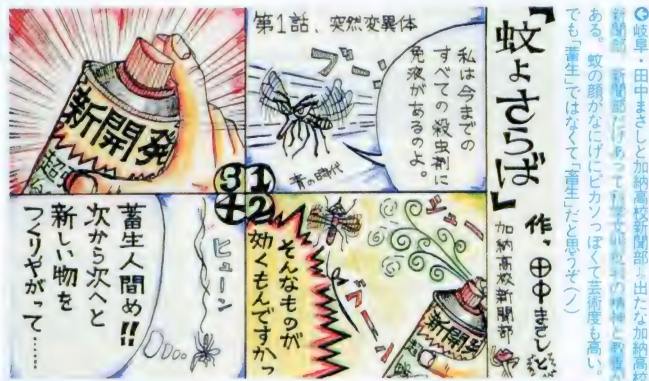 岐阜・田中まさしと加納高校新聞部＝出たな加納高校
新聞部 新聞部だけあって 文明批判の精神と教養が
ある。蚊の顔がなにげにピカソっぽくて芸術度も高い。
でも「蓄生」ではなくて「畜生」だと思うぞ(ノ)
「蚊よさらば」
作、田中まさしと
加納高校新聞部
第1話、突然変異体
私は今までの
すべての殺虫剤に
免疫があるのよ。
ブーン
青の時代
1
2
3
4
ビュー
ブーン
そんなものが
効くもんですかっ
新開発
新開発
超
ヒューン
蓄生人間め!!
次から次へと
新しい物を
つくりやがって……